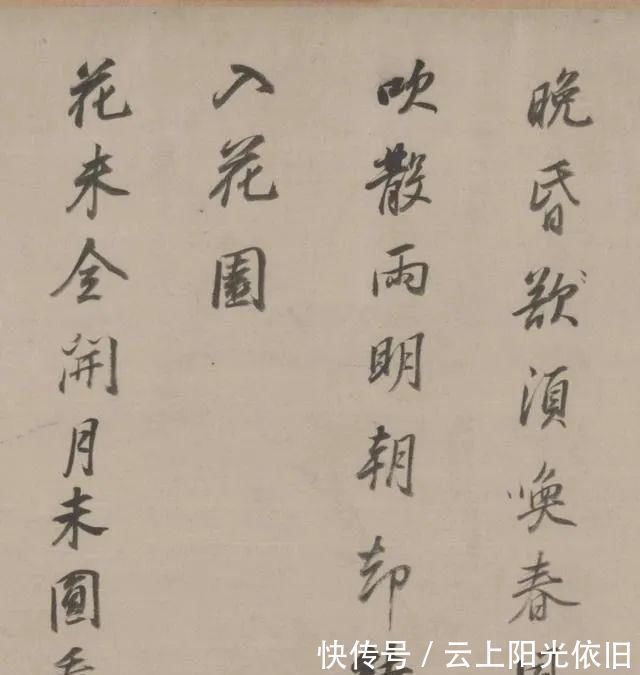 晚昏須喚春
吹散雨明朝却
入花園
花未全開月未圓
快传号 / 云上阳光依旧